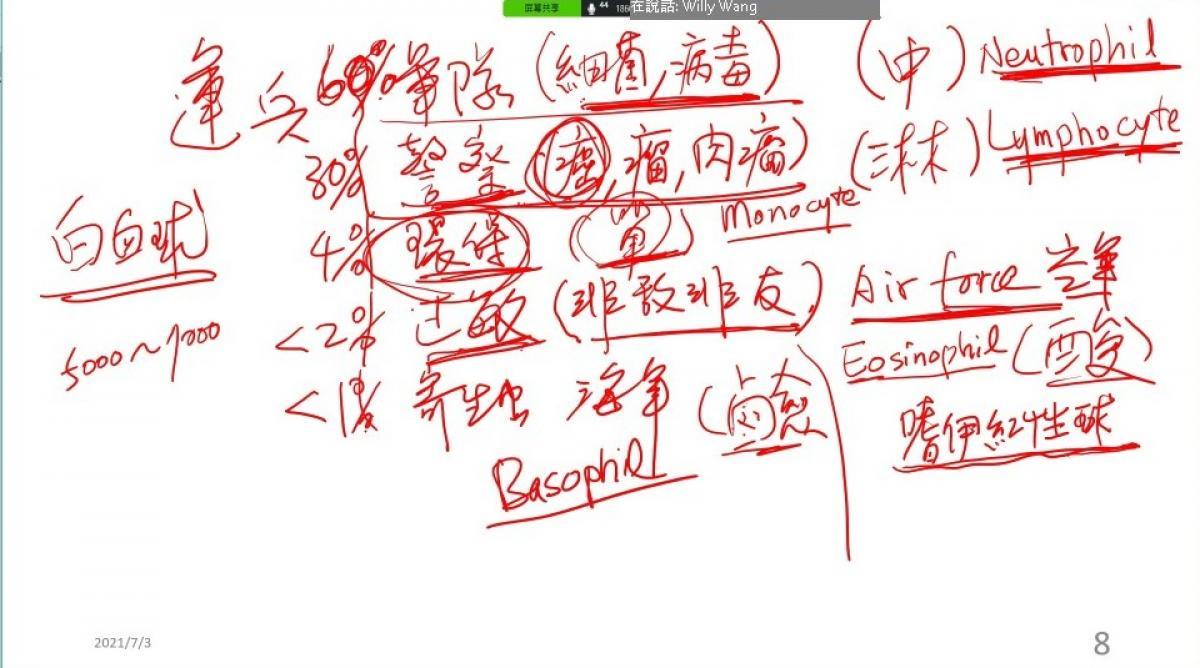 屏幕共享 44 186 在說話: Willy Wang
運兵 60% 軍隊 (細菌, 病毒) (中) Neutrophil
30% 警察 (癌, 瘤, 肉瘤) (淋) Lymphocyte
白血球 4% 環保 (單) Monocyte
<2% 过敏 (非敌非友) Air force 空軍
5000~9000
Eosinophil (酸)
<1% 寄生虫 海軍 (鹵鹼
嗜伊紅性球
Basophil
2021/7/3
8